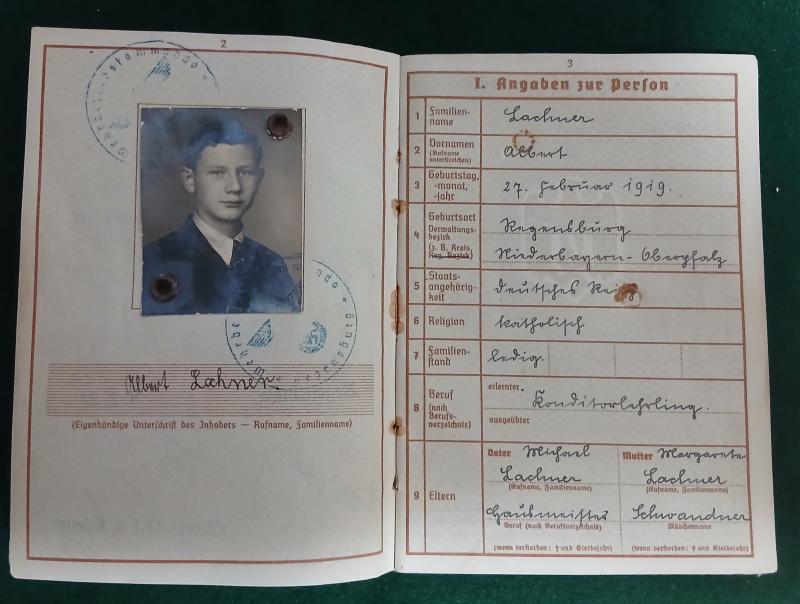 2
Albert Lachner
(Eigenhändige Unterschrift des Inhabers — Rufname, Familienname)
3
I. Angaben zur Person
1 Familien-
name
Lachner
2 Vornamen
(Rufname
unterstreichen)
Albert
3 Geburtstag,
-monat,
-jahr
27. Februar 1919.
4 Geburtsort
Verwaltungs-
bezirk
(z. B. Kreis,
Reg.-Bezirk)
Regensburg
Niederbayern-Oberpfalz
5 Staats-
angehörig-
keit
deutsches
6 Religion
katholisch
7 Familien-
stand
ledig.
8 Beruf
(nach
Berufs-
verzeichnis)
erlernter
Konditorlehrling.
ausgeübter
9 Eltern
Vater Michael
Lachner
(Rufname, Familienname)
Hausmeister
Beruf (nach Berufsverzeichnis)
(wenn verstorben: † und Sterbejahr)
Mutter Margarete
Lachner
(Rufname, Familienname)
Schwandner
Mädchenname
(wenn verstorben: † und Sterbejahr)